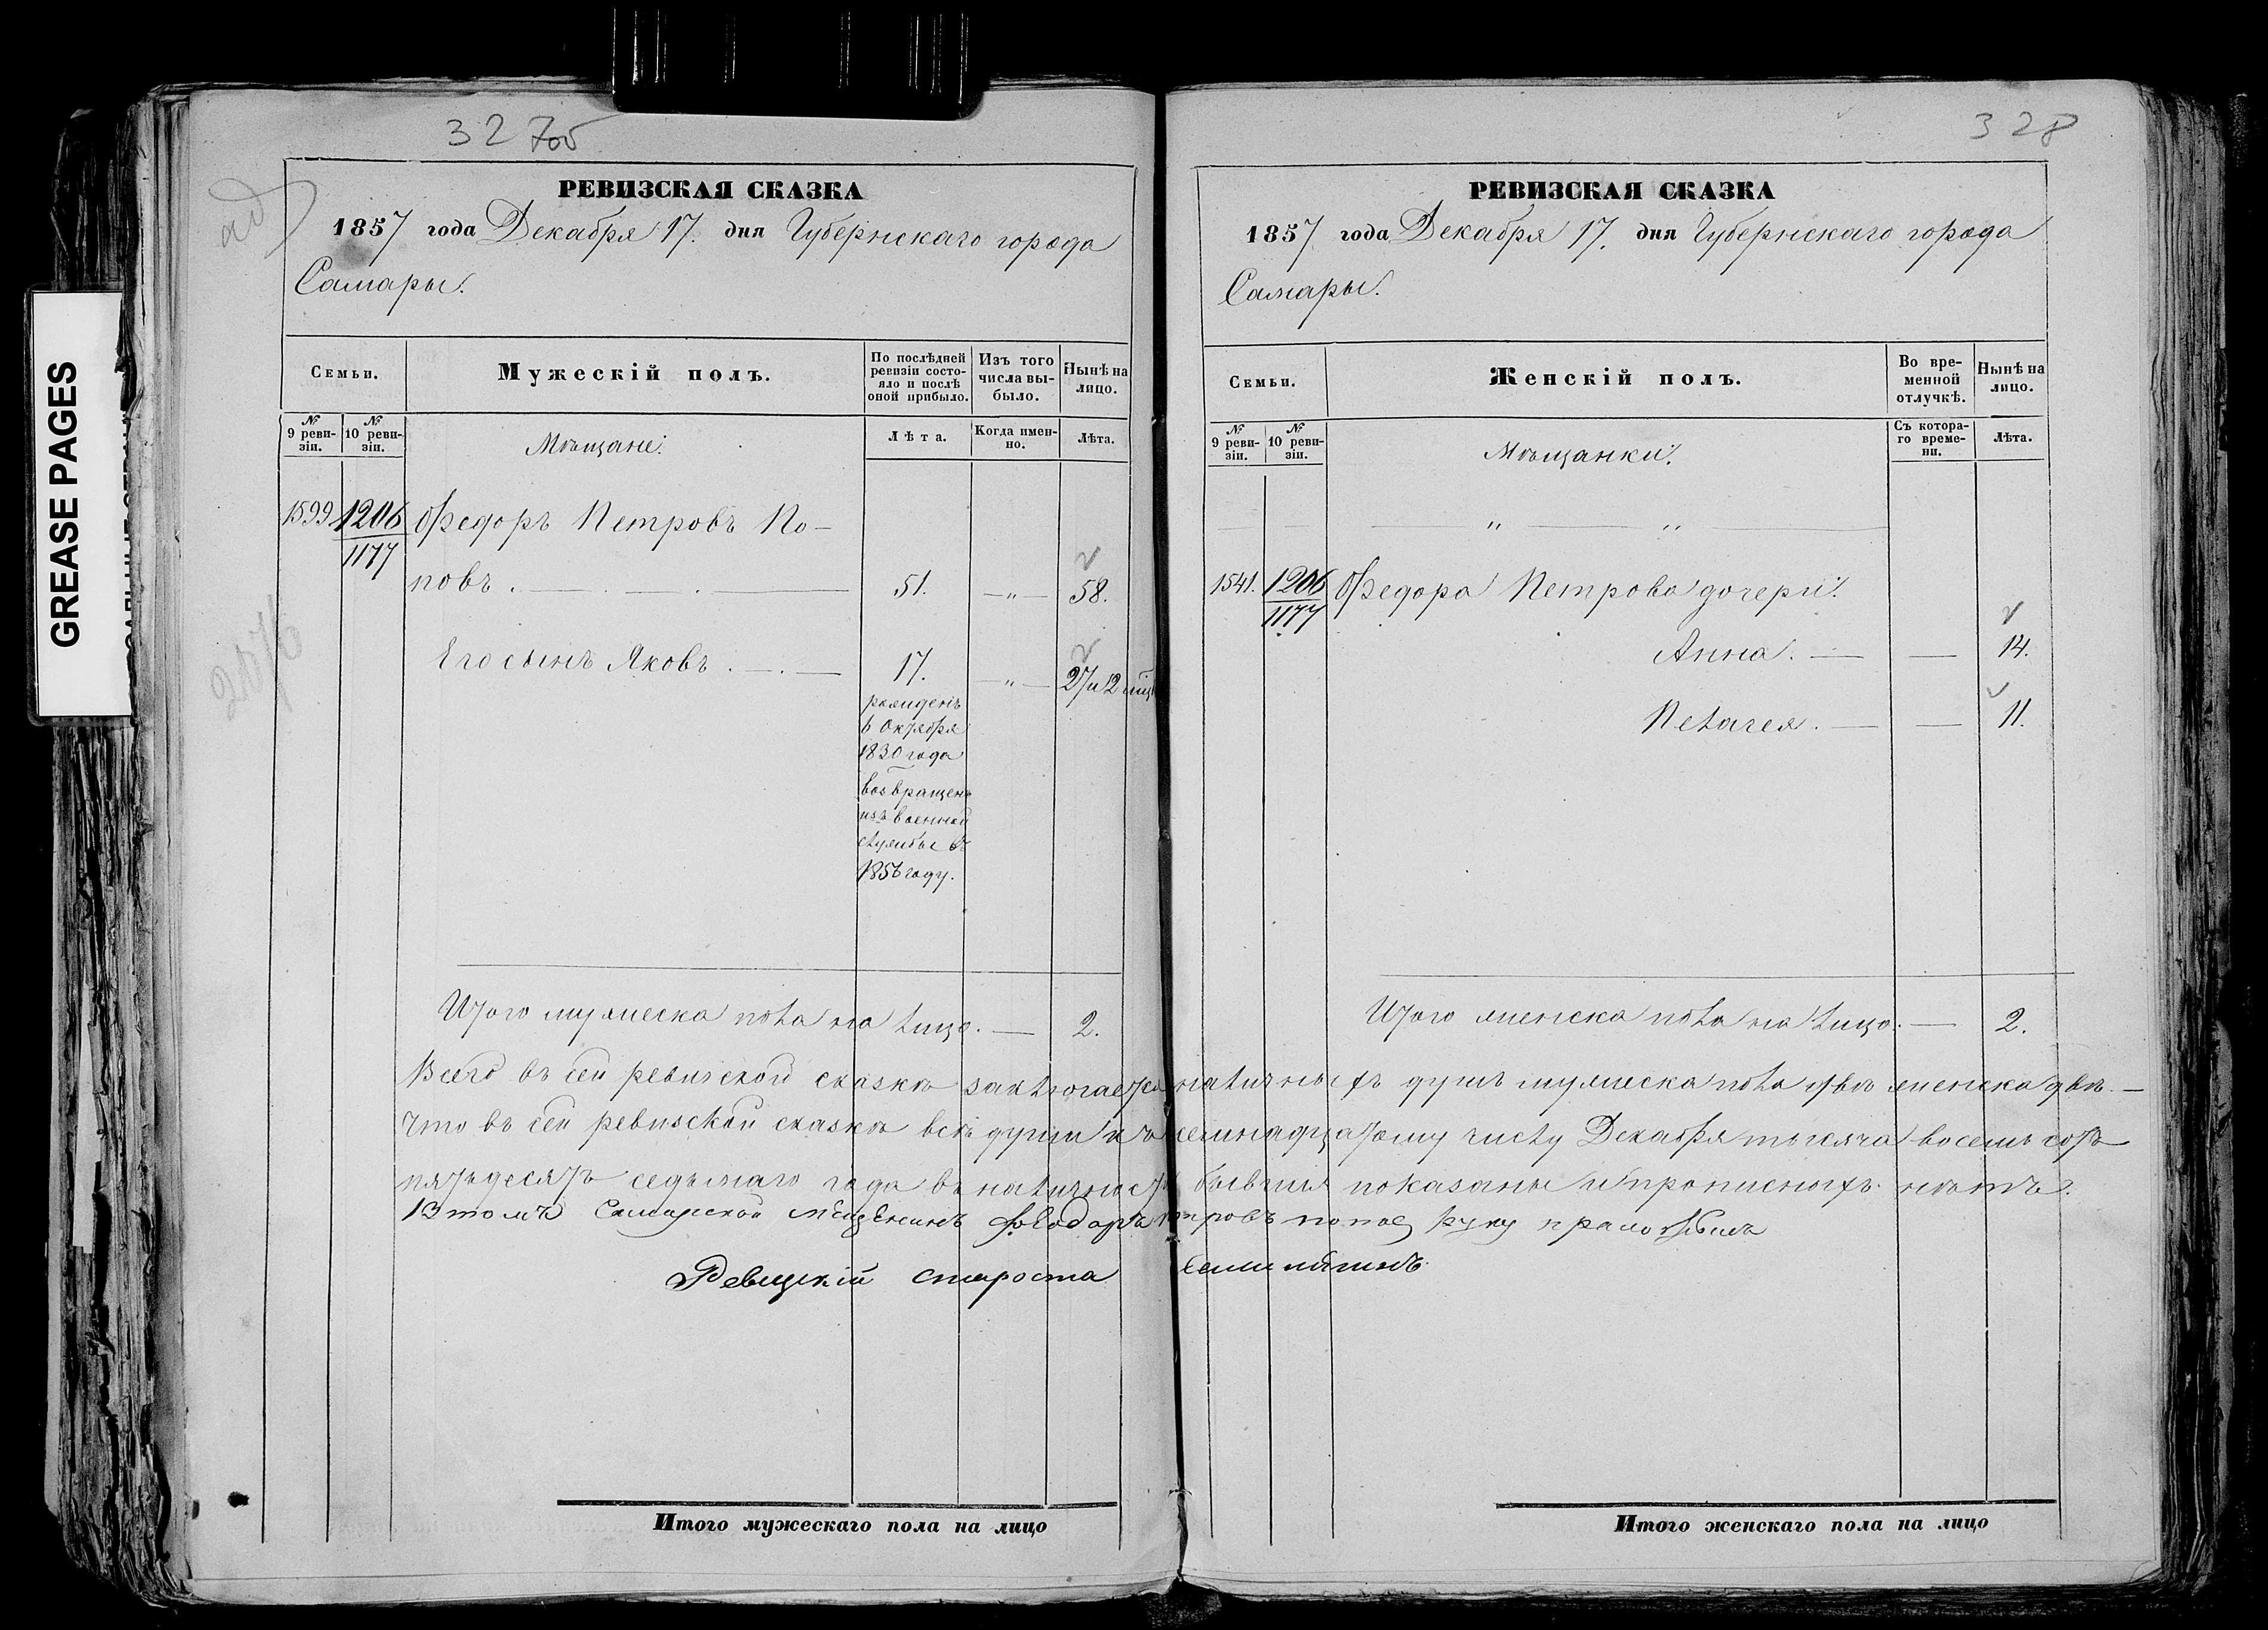 327об
РЕВИЗСКАЯ СКАЗКА
1857 года Декабря 17. дня Губернскаго города
Самары.
Семьи.
Мужескій полъ.
По послѣдней ревизіи состо-
яло и послѣ
оной прибыло.
Изъ того
числа вы-
было.
Нынѣ на
лицо.
№
9 реви-
зіи.
№
10 реви-
зіи.
Мѣщане.
Лѣта.
Когда имен-
но.
Лѣта.
1599 1206 Федоръ Петровъ По-
1177
повъ . — . — . — 51. —„— 58.
Его сынъ Яковъ . — . — 17. —„— 27 и 2 мѣс
рожденъ
6 Октября
1830 года
возвращенъ
изъ военной
службы въ
1856 году.
Итого мужеска пола на лицо. — 2.
328
РЕВИЗСКАЯ СКАЗКА
1857 года Декабря 17. дня Губернскаго города
Самары.
Семьи.
Женскій полъ.
Во вре-
менной
отлучкѣ.
Нынѣ на
лицо.
№
9 реви-
зіи.
№
10 реви-
зіи.
Мѣщанки.
Съ котора-
го време-
ни.
Лѣта.
— „ — „ —
1541. 1206 Федора Петрова дочери.
1177
Анна. — — 14.
Пелагея. — — 11.
Итого женска пола на лицо. — 2.
Всего въ сей ревизской сказкѣ заключается наличныхъ душъ мужеска пола двѣ женска двѣ. —
Что въ сей ревизской сказкѣ всѣ души къ семнадцатому числу Декабря тысяча восемь сотъ
пятьдесятъ седьмаго года въ наличности бывшия показаны и прописныхъ нѣтъ.
Втомъ Самарской мещенинъ Федоръ Петровъ попов руку приложилъ
Ревизкій староста
Итого мужескаго пола на лицо
Итого женскаго пола на лицо
GREASE PAGES